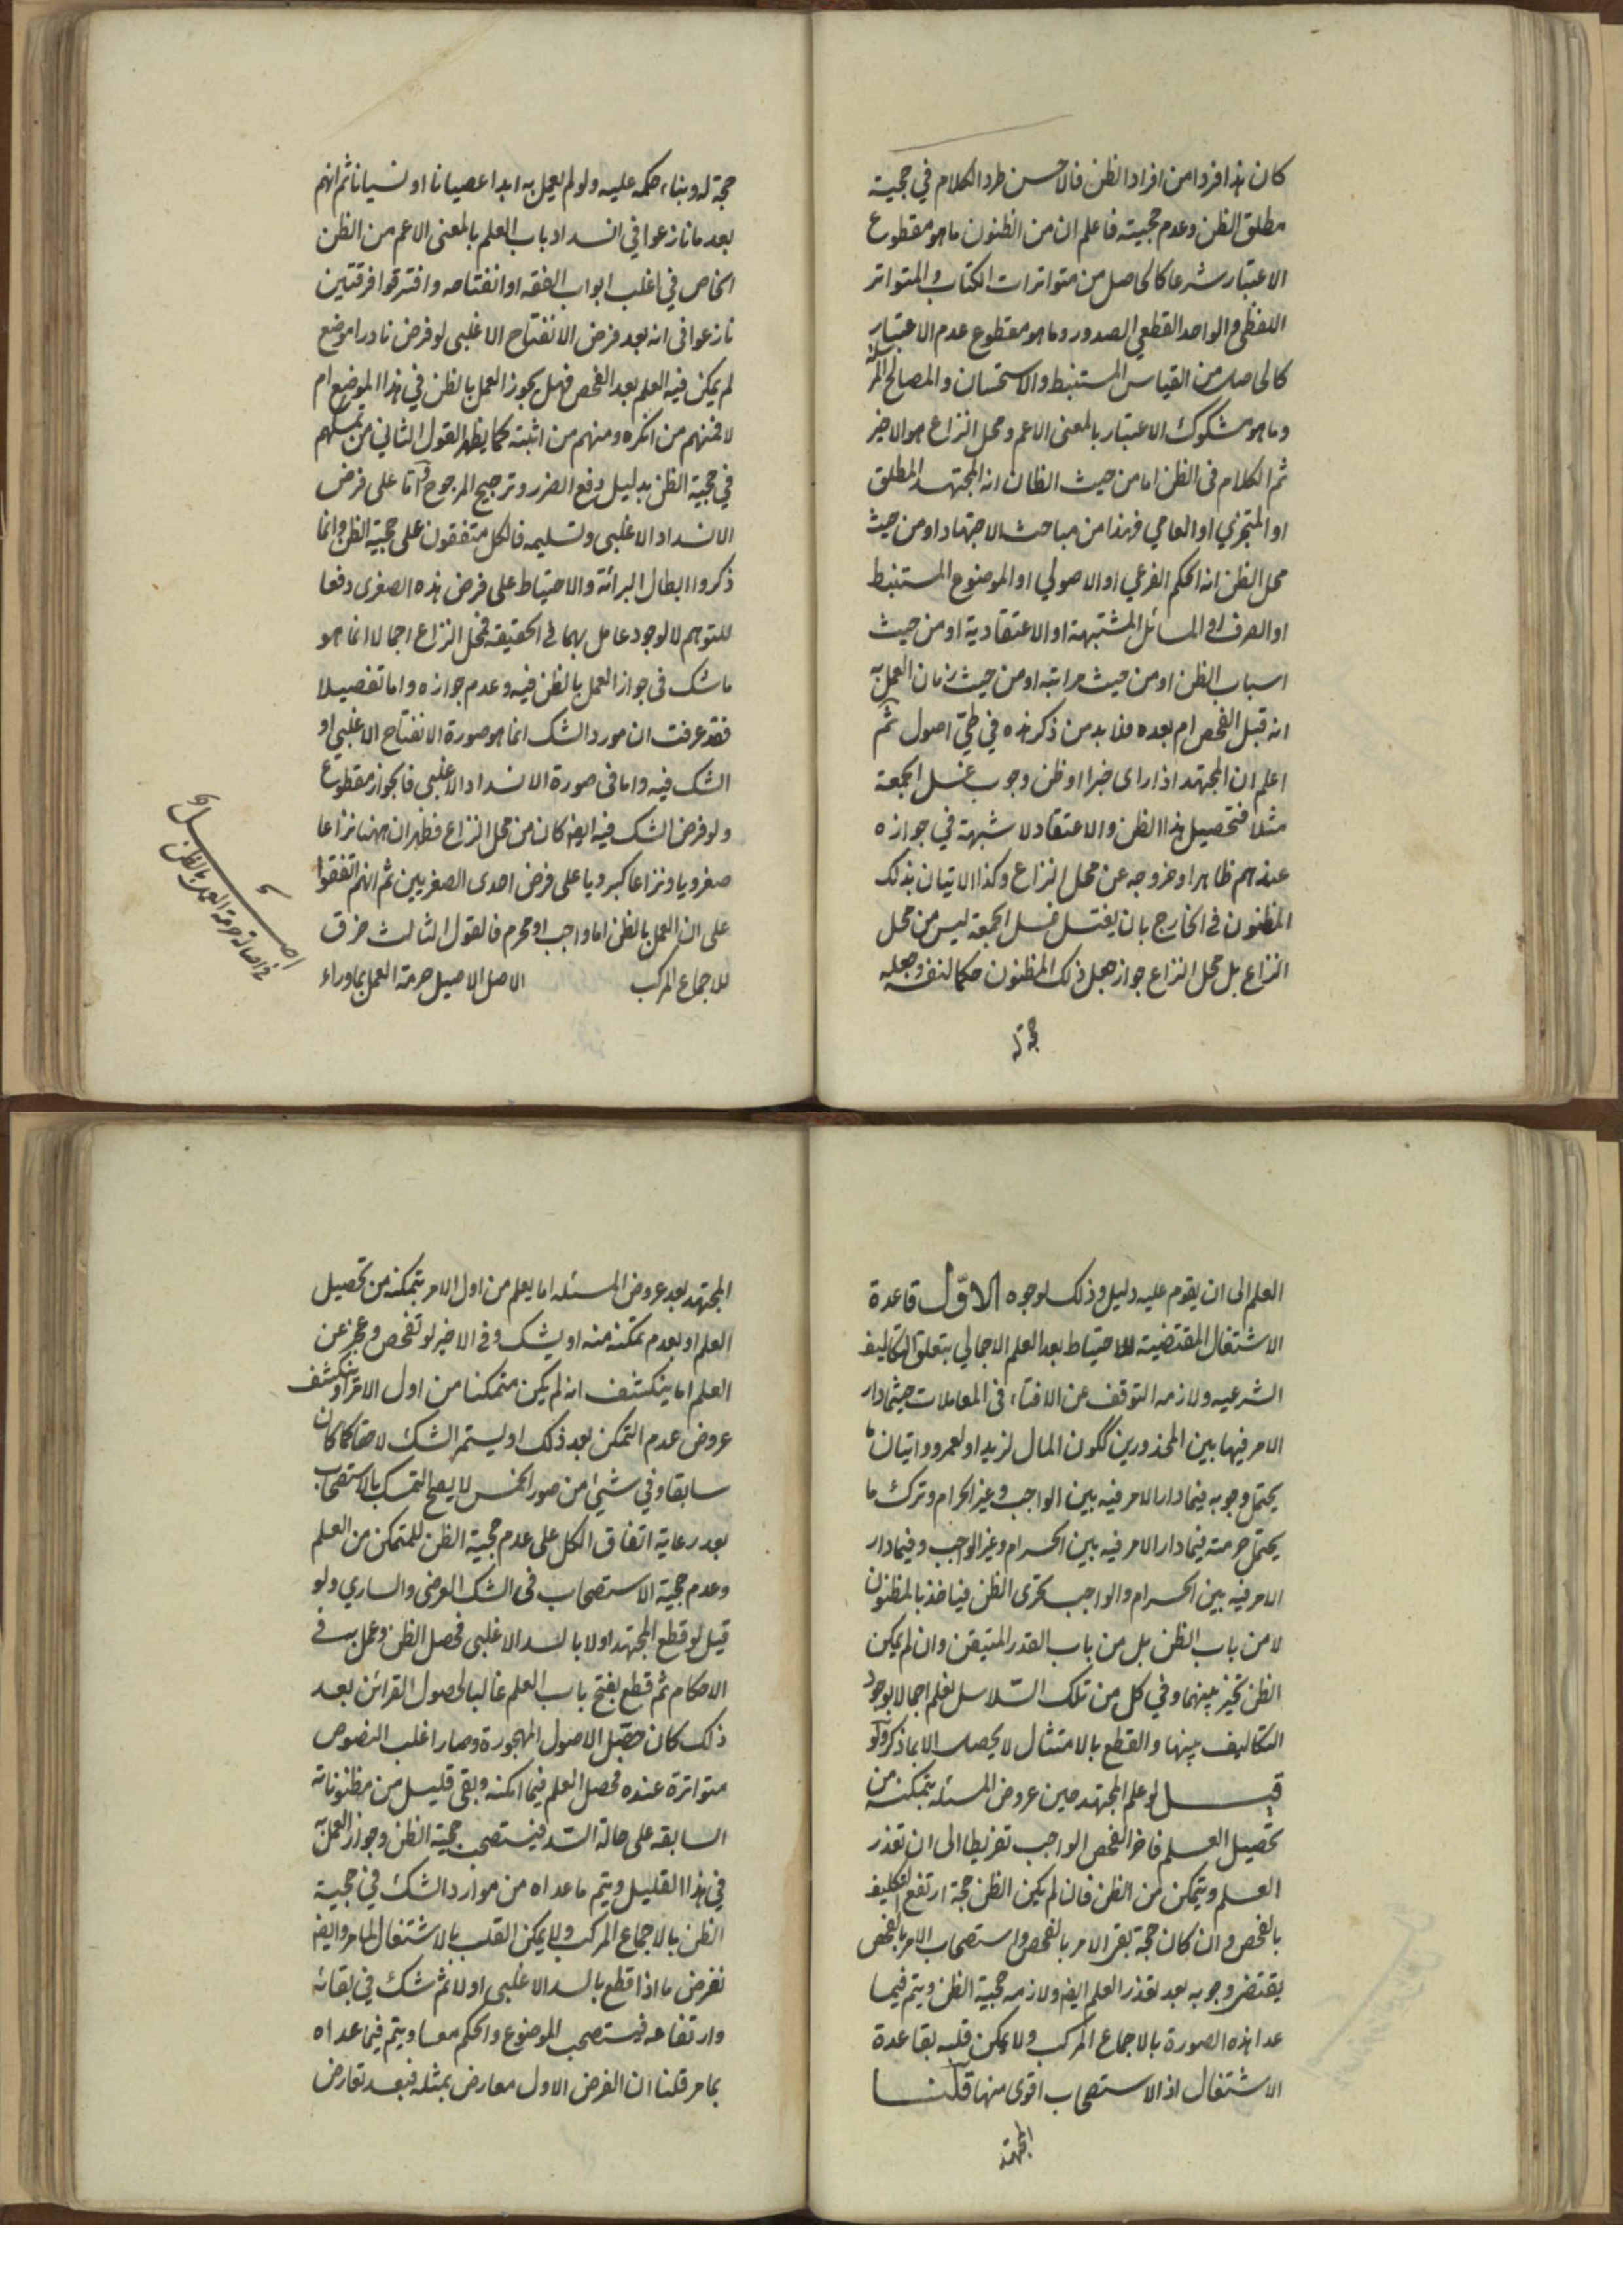 كان هذا فردا من افراد الظن فالاحسن طرد الكلام في حجية
مطلق الظن وعدم حجيته فاعلم ان من الظنون ما هو مقطوع
الاعتبار شرعا كالحاصل من متواترات الكتاب والمتواتر
اللفظي والواحد القطعي الصدور وما هو مقطوع عدم الاعتبار
كالحاصل من القياس المستنبط والاستحسان والمصالح المرسلة
وما هو مشكوك الاعتبار بالمعنى الاعم ومحل النزاع هو الاخير
ثم الكلام في الظن اما من حيث الظان انه المجتهد المطلق
او المتجزي او العامي فهذا من مباحث الاجتهاد او من حيث
محل الظن انه الحكم الفرعي او الاصولي او الموضوع المستنبط
او الصرف او المسائل المشتبهة او الاعتقادية او من حيث
اسباب الظن او من حيث مراتبه او من حيث زمان العمل به
انه قبل الفحص ام بعده فلا بد من ذكر هذه في طيّ اصول ثم
اعلم ان المجتهد اذا راى خبرا او ظن وجوب غسل الجمعة
مثلا فتحصيل هذا الظن والاعتقاد لا شبهة في جوازه
عندهم ظاهرا وخروجه عن محل النزاع وكذا الاتيان بذلك
المظنون في الخارج بان يغتسل غسل الجمعة ليس من محل
النزاع بل محل النزاع جواز جعل ذلك المظنون حكما لنفسه وجعله
حجة له
حجة له وبناء حكمه عليه ولو لم يعمل به ابدا عصيانا او نسيانا ثم انهم
بعد ما نازعوا في انسداد باب العلم بالمعنى الاعم من الظن
الخاص في اغلب ابواب الفقه او انفتاحه وافترقوا فرقتين
نازعوا في انه بعد فرض الانفتاح الاغلبي لو فرض نادرا موضع
لم يمكن فيه العلم بعد الفحص فهل يجوز العمل بالظن في هذا الموضع ام
لا فمنهم من انكره ومنهم من اثبته كما يظهر القول الثاني من تمسكهم
في حجية الظن بدليل دفع الضرر وترجيح المرجوح واما على فرض
الانسداد الاغلبي وتسليمه فالكل متفقون على حجية الظن وانما
ذكروا ابطال البرائة والاحتياط على فرض هذه الصغرى دفعا
للتوهم لا لوجود عامل بهما في الحقيقة فمحل النزاع اجمالا انما هو
ما شك في جواز العمل بالظن فيه وعدم جوازه واما تفصيلا
فقد عرفت ان مورد الشك انما هو صورة الانفتاح الاغلبي او
الشك فيه واما في صورة الانسداد الاغلبي فالجواز مقطوع
ولو فرض الشك فيه ايضا كان من محل النزاع فظهر ان ههنا نزاعا
صغرويا ونزاعا كبرويا على فرض احدى الصغريين ثم انهم اتفقوا
على ان العمل بالظن اما واجب او محرم فالقول الثالث خرق
للاجماع المركب الاصل الاصيل حرمة العمل بما وراء
اصل
في اصالة حرمة العمل بالظن
العلم الى ان يقوم عليه دليل وذلك لوجوه الاوّل قاعدة
الاشتغال المقتضية للاحتياط بعد العلم الاجمالي بتعلق التكاليف
الشرعيه ولازمه التوقف عن الافتاء في المعاملات حيثما دار
الامر فيها بين المحذورين ككون المال لزيد او لعمرو واتيان ما
يحتمل وجوبه فيما دار الامر فيه بين الواجب وغير الحرام وترك ما
يحتمل حرمته فيما دار الامر فيه بين الحرام وغير الواجب وفيما دار
الامر فيه بين الحرام والواجب تحرى الظن فيأخذ بالمظنون
لا من باب الظن بل من باب القدر المتيقن وان لم يمكن
الظن تخير بينهما وفي كل من تلك السّلاسل نعلم اجمالا بوجود
التكاليف بينها والقطع بالامتثال لا يحصل الا بما ذكر ولو
قيل لو علم المجتهد حين عروض المسئله بتمكنه من
تحصيل العلم فاخر الفحص الواجب تفريطا الى ان تعذر
العلم ويتمكن من الظن فان لم يكن الظن حجة ارتفع التكليف
بالفحص وان كان حجة بقي الامر بالفحص واستصحاب الامر بالفحص
يقتضي وجوبه بعد تعذر العلم ايضا ولازمه حجية الظن ويتم فيما
عدا هذه الصورة بالاجماع المركب ولا يمكن قلبه بقاعدة
الاشتغال اذ الاستصحاب اقوى منها قلنا
المجتهد
المجتهد بعد عروض المسئله اما يعلم من اول الامر بتمكنه من تحصيل
العلم او بعدم تمكنه منه او يشك وفي الاخير لو تفحص وعجز عن
العلم اما ينكشف انه لم يكن متمكنا من اول الامر او ينكشف
عروض عدم التمكن بعد ذلك او يستمر الشك لاحقا كما كان
سابقا وفي شيئ من صور الخمس لا يصح التمسك بالاستصحاب
بعد رعاية اتفاق الكل على عدم حجية الظن للمتمكن من العلم
وعدم حجية الاستصحاب في الشك العرضي والساري ولو
قيل لو قطع المجتهد اولا بالسد الاغلبي فحصل الظن وعمل به في
الاحكام ثم قطع بفتح باب العلم غالبا لحصول القرائن بعد
ذلك كان حصّل الاصول المهجورة وصار اغلب النصوص
متواترة عنده فحصل العلم فيما امكنه وبقي قليل من مظنوناته
السابقه على حالة السّد فيستصحب حجية الظن وجواز العمل به
في هذا القليل ويتم ما عداه من موارد الشك في حجية
الظن بالاجماع المركب ولا يمكن القلب بالاشتغال لما مر وايضا
نفرض ما اذا قطع بالسد الاغلبي اولا ثم شك في بقائه
وارتفاعه فيستصحب الموضوع والحكم معا ويتم فيما عداه
بما مر قلنا ان الفرض الاول معارض بمثله فبعد تعارض